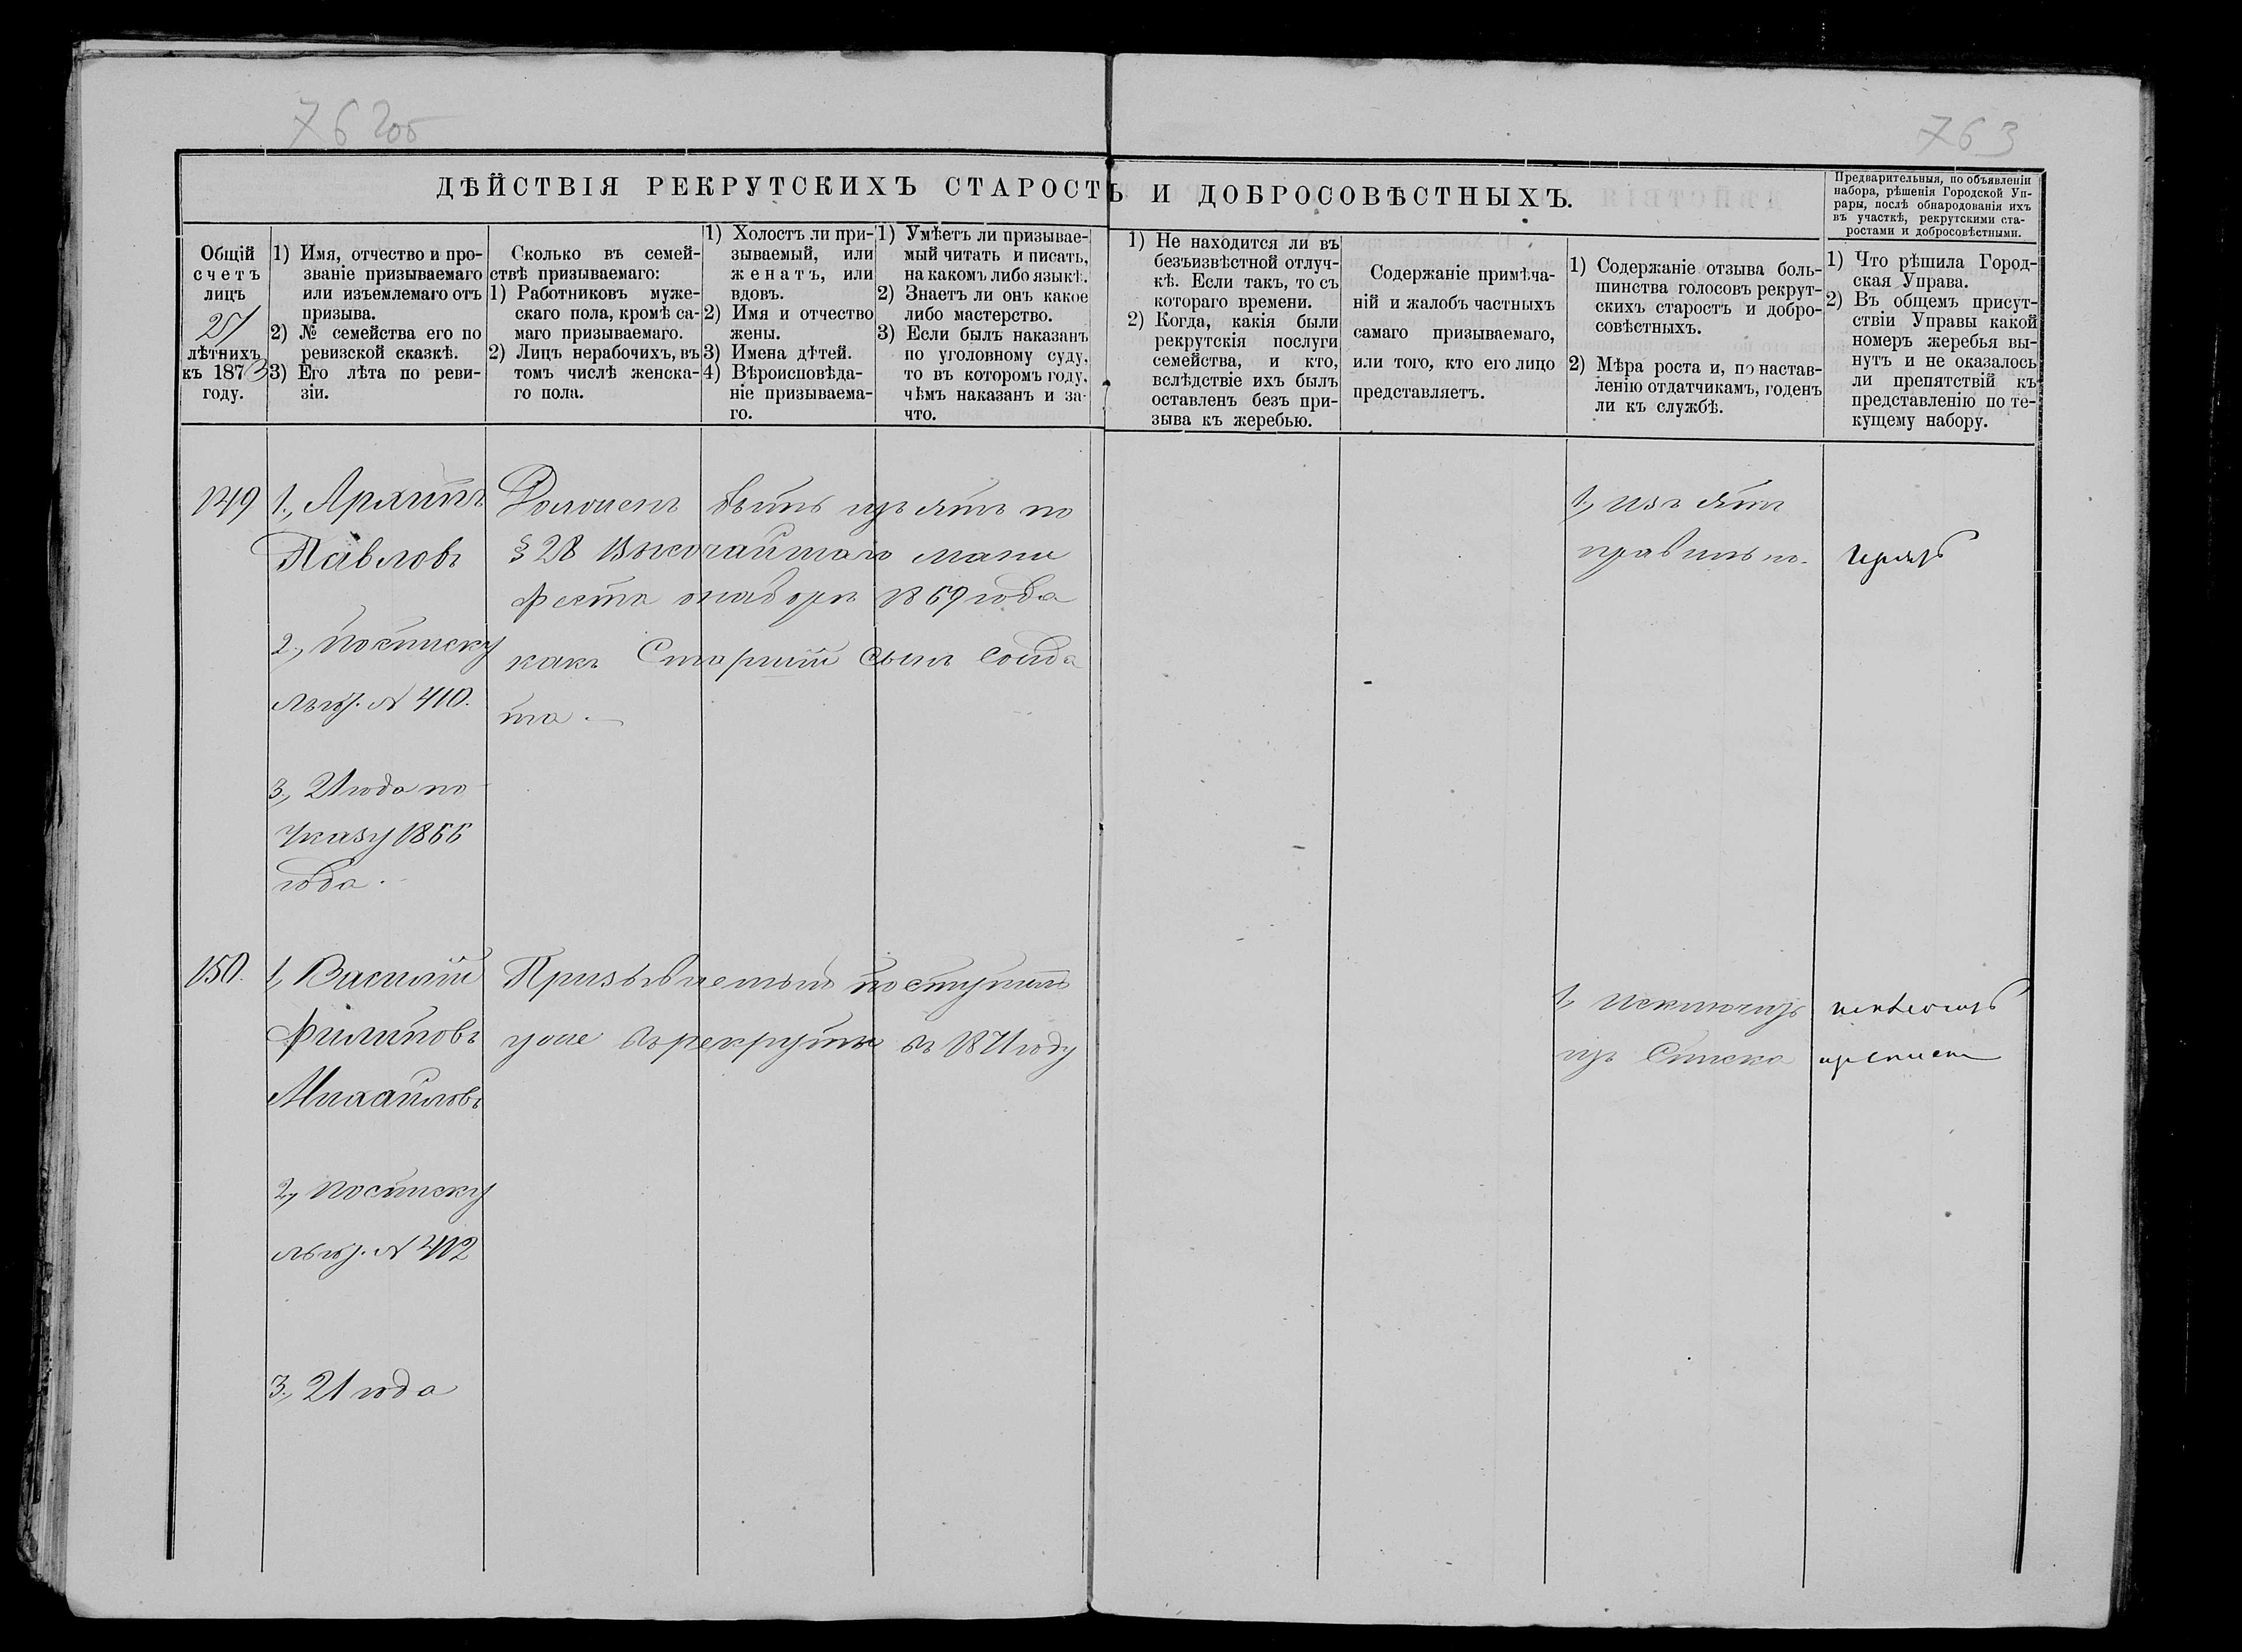 762об
763
ДѢЙСТВІЯ РЕКРУТСКИХЪ СТАРОСТЪ И ДОБРОСОВѢСТНЫХЪ.
Предварительныя, по объявленіи
набора, рѣшенія Городской Уп-
рары, послѣ обнародованія ихъ
въ участкѣ, рекрутскими ста-
ростами и добросовѣстными.
Общій
счетъ
лицъ
21
лѣтнихъ
къ 1873
году.
1) Имя, отчество и про-
званіе призываемаго
или изъемлемаго отъ
призыва.
2) № семейства его по
ревизской сказкѣ.
3) Его лѣта по реви-
зіи.
Сколько въ семей-
ствѣ призываемаго:
1) Работниковъ муже-
скаго пола, кромѣ са-
маго призываемаго.
2) Лицъ нерабочихъ, въ
томъ числѣ женска-
го пола.
1) Холостъ ли при-
зываемый, или
женатъ, или
вдовъ.
2) Имя и отчество
жены.
3) Имена дѣтей.
4) Вѣроисповѣда-
ніе призываема-
го.
1) Умѣетъ ли призывае-
мый читать и писать,
на какомъ либо языкѣ.
2) Знаетъ ли онъ какое
либо мастерство.
3) Если былъ наказанъ
по уголовному суду,
то въ которомъ году,
чѣмъ наказанъ и за-
что.
1) Не находится ли въ
безъизвѣстной отлуч-
кѣ. Если такъ, то съ
котораго времени.
2) Когда, какія были
рекрутскія послуги
семейства, и кто,
вслѣдствіе ихъ былъ
оставленъ безъ при-
зыва къ жеребью.
Содержаніе примѣча-
ній и жалобъ частныхъ
самаго призываемаго,
или того, кто его лицо
представляетъ.
1) Содержаніе отзыва боль-
шинства голосовъ рекрут-
скихъ старостъ и добро-
совѣстныхъ.
2) Мѣра роста и, по настав-
ленію отдатчикамъ, годенъ
ли къ службѣ.
1) Что рѣшила Город-
ская Управа.
2) Въ общемъ присут-
ствіи Управы какой
номеръ жеребья вы-
нутъ и не оказалось
ли препятствій къ
представленію по те-
кущему набору.
149
1., Архипъ
Павловъ
2., по списку
№ 410.
3., 21 года по
указу 1866
года.
Долженъ быть изъятъ по
§ 28 Высочайшаго мани
феста о наборѣ 1869 года
какъ Старшій сынъ Солда
та.
1., изъятъ
правильно.
150.
1., Василій
Филиповъ
Михаиловъ
2., по списку
№ 412
3., 21 года
Призываемый поступилъ
уже въ рекруты въ 1871 году
1., исключить
изъ Списка